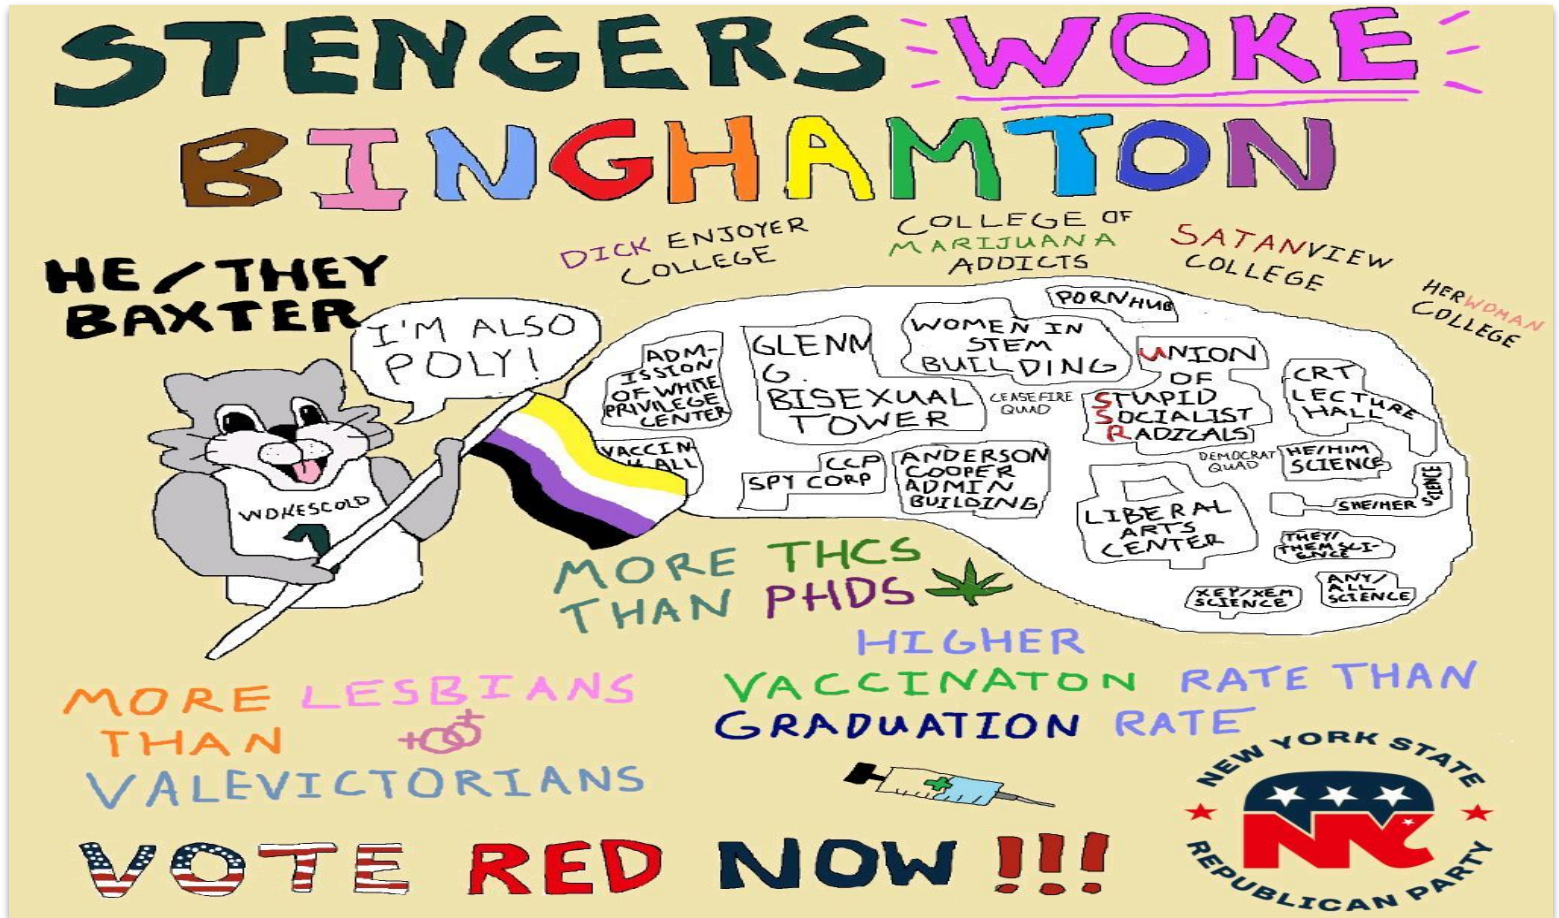 STENGERS WOKE
BINGHAMTON
HE/THEY
BAXTER
DICK ENJOYER
COLLEGE
COLLEGE OF
MARIJUANA
ADDICTS
SATANVIEW
COLLEGE
HERWOMAN
COLLEGE
I'M ALSO
POLY!
ADM-
ISSION
OF WHITE
PRIVILEGE
CENTER
GLENN
G.
BISEXUAL
TOWER
WOMEN IN
STEM
BUILDING
PORNHUB
UNION
OF
STUPID
SOCIALIST
RADICALS
CEASEFIRE
QUAD
CRT
LECTURE
HALL
VACCIN
HALL
CCP
SPY CORP
ANDERSON
COOPER
ADMIN
BUILDING
DEMOCRAT
QUAD
HE/HIM
SCIENCE
SHE/HER SCIENCE
LIBERAL
ARTS
CENTER
THEY/
THEM SCI-
ENCE
XEY/XEM
SCIENCE
ANY/
ALL
SCIENCE
WOKESCOLD
MORE THCS
THAN PHDS
HIGHER
VACCINATON RATE THAN
GRADUATION RATE
MORE LESBIANS
THAN
VALEVICTORIANS
VOTE RED NOW!!!
NEW YORK STATE
NY
REPUBLICAN PARTY